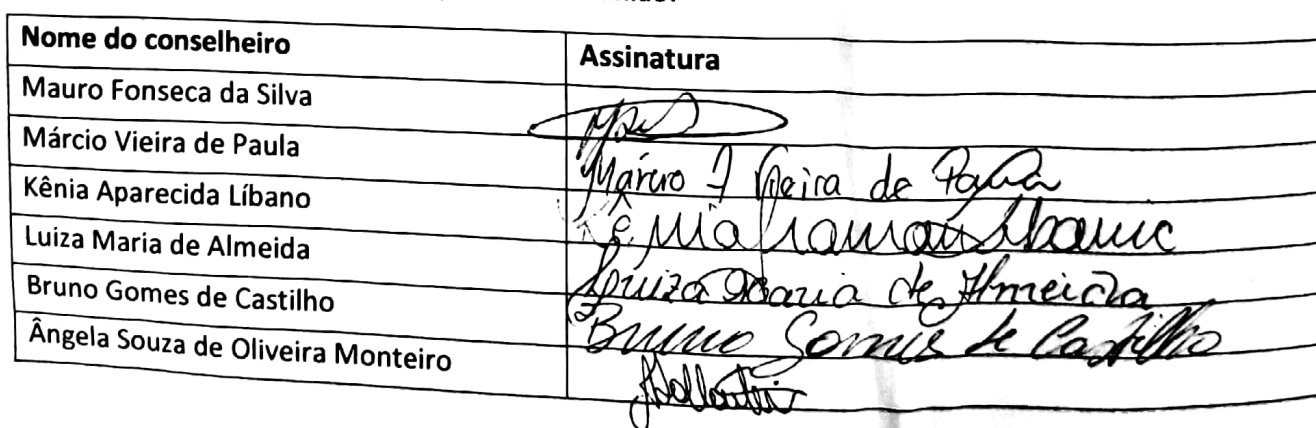 Nome do conselheiro Assinatura
Mauro Fonseca da Silva
Márcio Vieira de Paula Márcio Vieira de Paula
Kênia Aparecida Líbano Kênia
Luiza Maria de Almeida Luiza Maria de Almeida
Bruno Gomes de Castilho Bruno Gomes de Castilho
Ângela Souza de Oliveira Monteiro